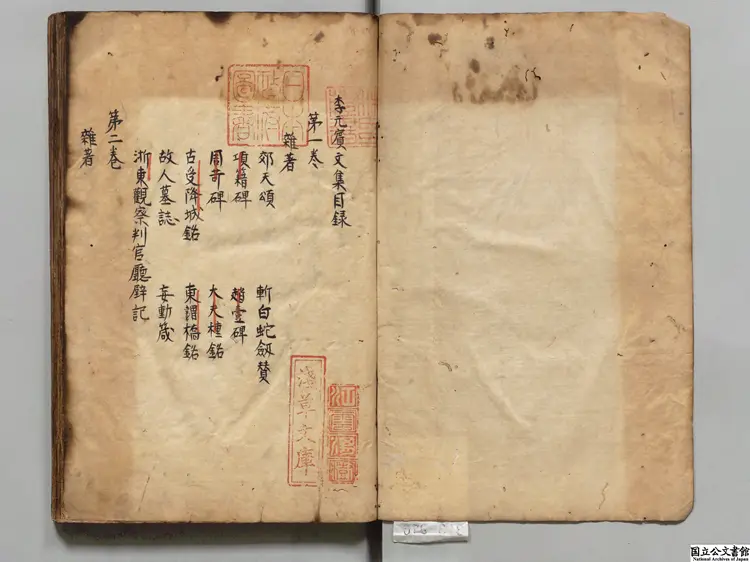 李元賓文集目録
第一巻
雜著
郊天頌 斬白蛇劔賛
項籍碑 趙壹碑
周苛碑 大夫種銘
古受降城銘 東渭橋銘
故人墓誌 妄動箴
浙東觀察判官廳壁記
第二巻
雜著
日本
政府
圖書
淺草文庫
江雲渭樹
国立公文書館
National Archives of Japan